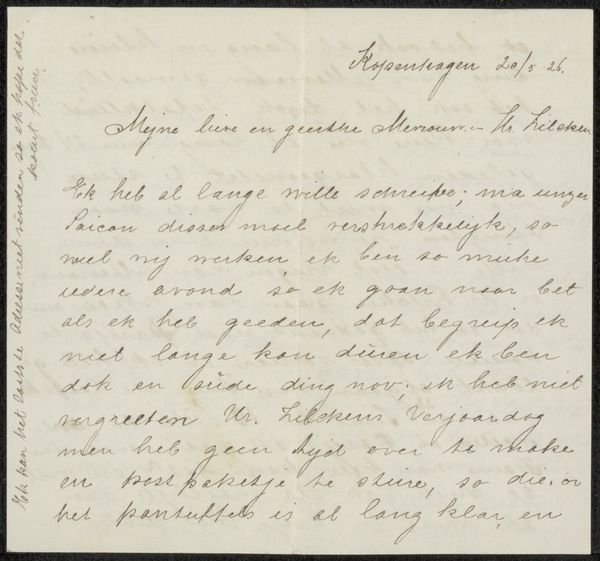 Kopenhagen 20/5 26.
Mijne lieve en geerthe Mevrouw – Hr. Zilcken
Ek heb al lange wille schreibe; ma unzer
Saicon disser mael verstrekkelijk, so
viel wij werken, ek ben so muthe
iedere avond, so ek gaan naar bet
als ek heb geeden, dat begreip ek
niet lange kan düren ek ben
dok en oüde ding nov; ek heb niet
vergreeten Hr. Zilckens Verjaardag
men heb geen tijd over te make
en postpaketje te stüre, so die
het pantuffels is al lang klar, en
Ek kan het Adresse niet finden so ek hope det
komt